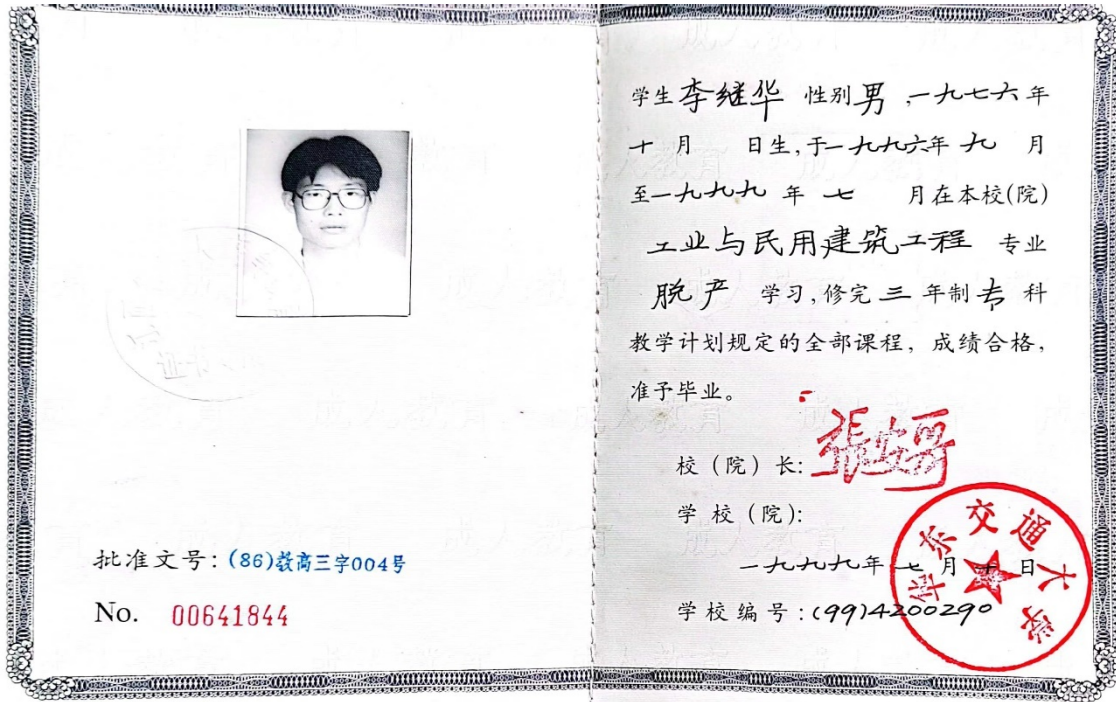 批准文号：(86)教高三字004号
No. 00641844
学生李继华 性别男，一九七六年
十月 日生,于一九九六年九 月
至一九九九 年 七 月在本校(院)
工业与民用建筑工程 专业
脱产 学习,修完三年制专科
教学计划规定的全部课程，成绩合格，
准予毕业。
校（院）长:
学校（院）:
华东交通大学
一九九九年七月十日
学校编号:(99)4200290